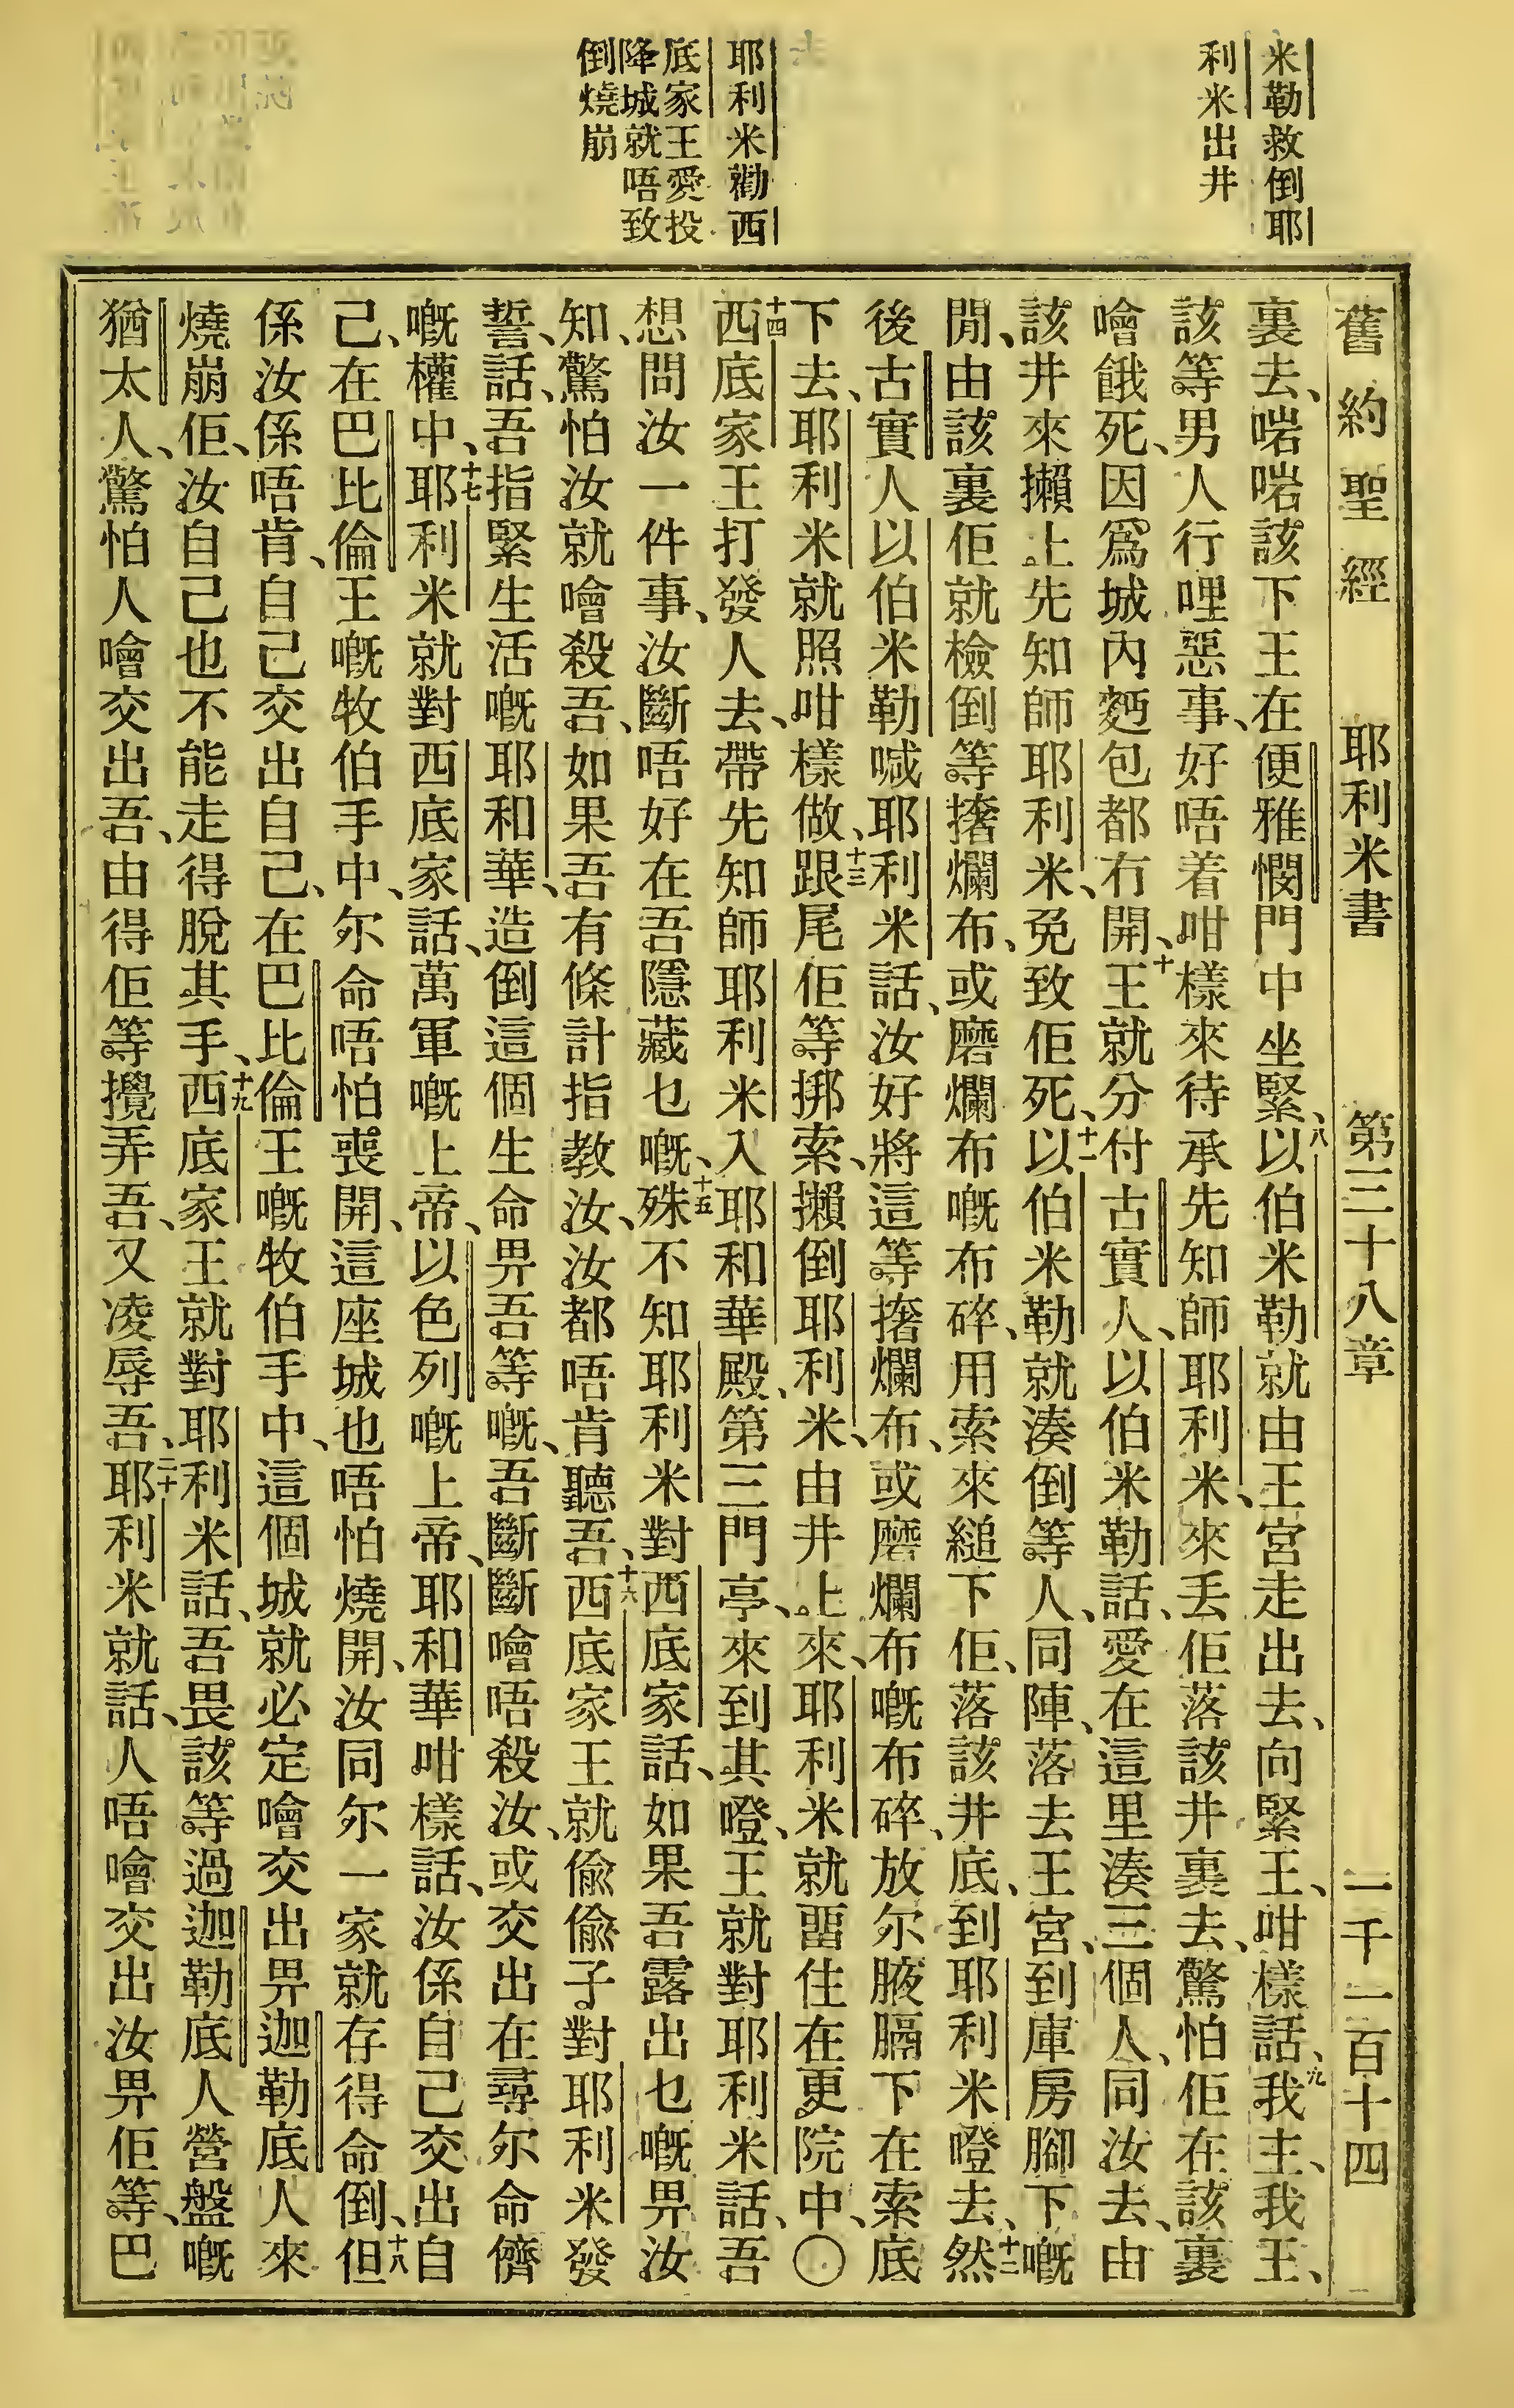 米勒救倒耶
利米出井
耶利米勸西
底家王愛投
降城就唔致
倒燒崩
舊約聖經　耶利米書　第三十八章　一千一百十四
裏去、喏喏該下王在便雅憫門中坐緊、八以伯米勒就由王宮走出去、向緊王、咁樣話、九我主、我王、
該等男人行哩惡事、好唔着咁樣來待承先知師耶利米、來丢佢落該井裏去、驚怕佢在該裏
噲餓死、因爲城內麪包都冇開、十王就分付古實人、以伯米勒話、愛在這里湊三個人、同汝去、由
該井來攋上先知師耶利米、免致佢死、十一以伯米勒就湊倒等人、同陣、落去王宮、到庫房腳下嘅
閒、由該裏佢就檢倒等撦爛布、或磨爛布嘅布碎、用索來縋下佢、落該井底、到耶利米嶝去、十二然
後古實人以伯米勒喊耶利米話、汝好將這等撦爛布、或磨爛布嘅布碎、放尔腋膈下在索底
下去、耶利米就照咁樣做、十三跟尾佢等挷索、攋倒耶利米、由井上來、耶利米就留住在更院中、〇
十四西底家王打發人去、帶先知師耶利米入耶和華殿、第三門亭、來到其嶝、王就對耶利米話、吾
想問汝一件事、汝斷唔好在吾隱藏乜嘅、十五殊不知耶利米對西底家話、如果吾露出乜嘅畀汝
知、驚怕汝就噲殺吾、如果吾有條計指教汝、汝都唔肯聽吾、十六西底家王就偷偷子對耶利米發
誓、話、吾指緊生活嘅耶和華、造倒這個生命畀吾等嘅、吾斷斷噲唔殺汝、或交出在尋尔命儕
嘅權中、十七耶利米就對西底家話、萬軍嘅上帝、以色列嘅上帝、耶和華咁樣話、汝係自己交出自
己、在巴比倫王嘅牧伯手中、尔命唔怕喪開、這座城也唔怕燒開、汝同尔一家就存得命倒、十八但
係汝係唔肯、自己交出自己、在巴比倫王嘅牧伯手中、這個城就必定噲交出畀迦勒底人來
燒崩佢、汝自己也不能走得脫其手、十九西底家王就對耶利米話、吾畏該等過迦勒底人營盤嘅
猶太人、驚怕人噲交出吾、由得佢等攪弄吾、又凌辱吾、二十耶利米就話、人唔噲交出汝畀佢等、巴